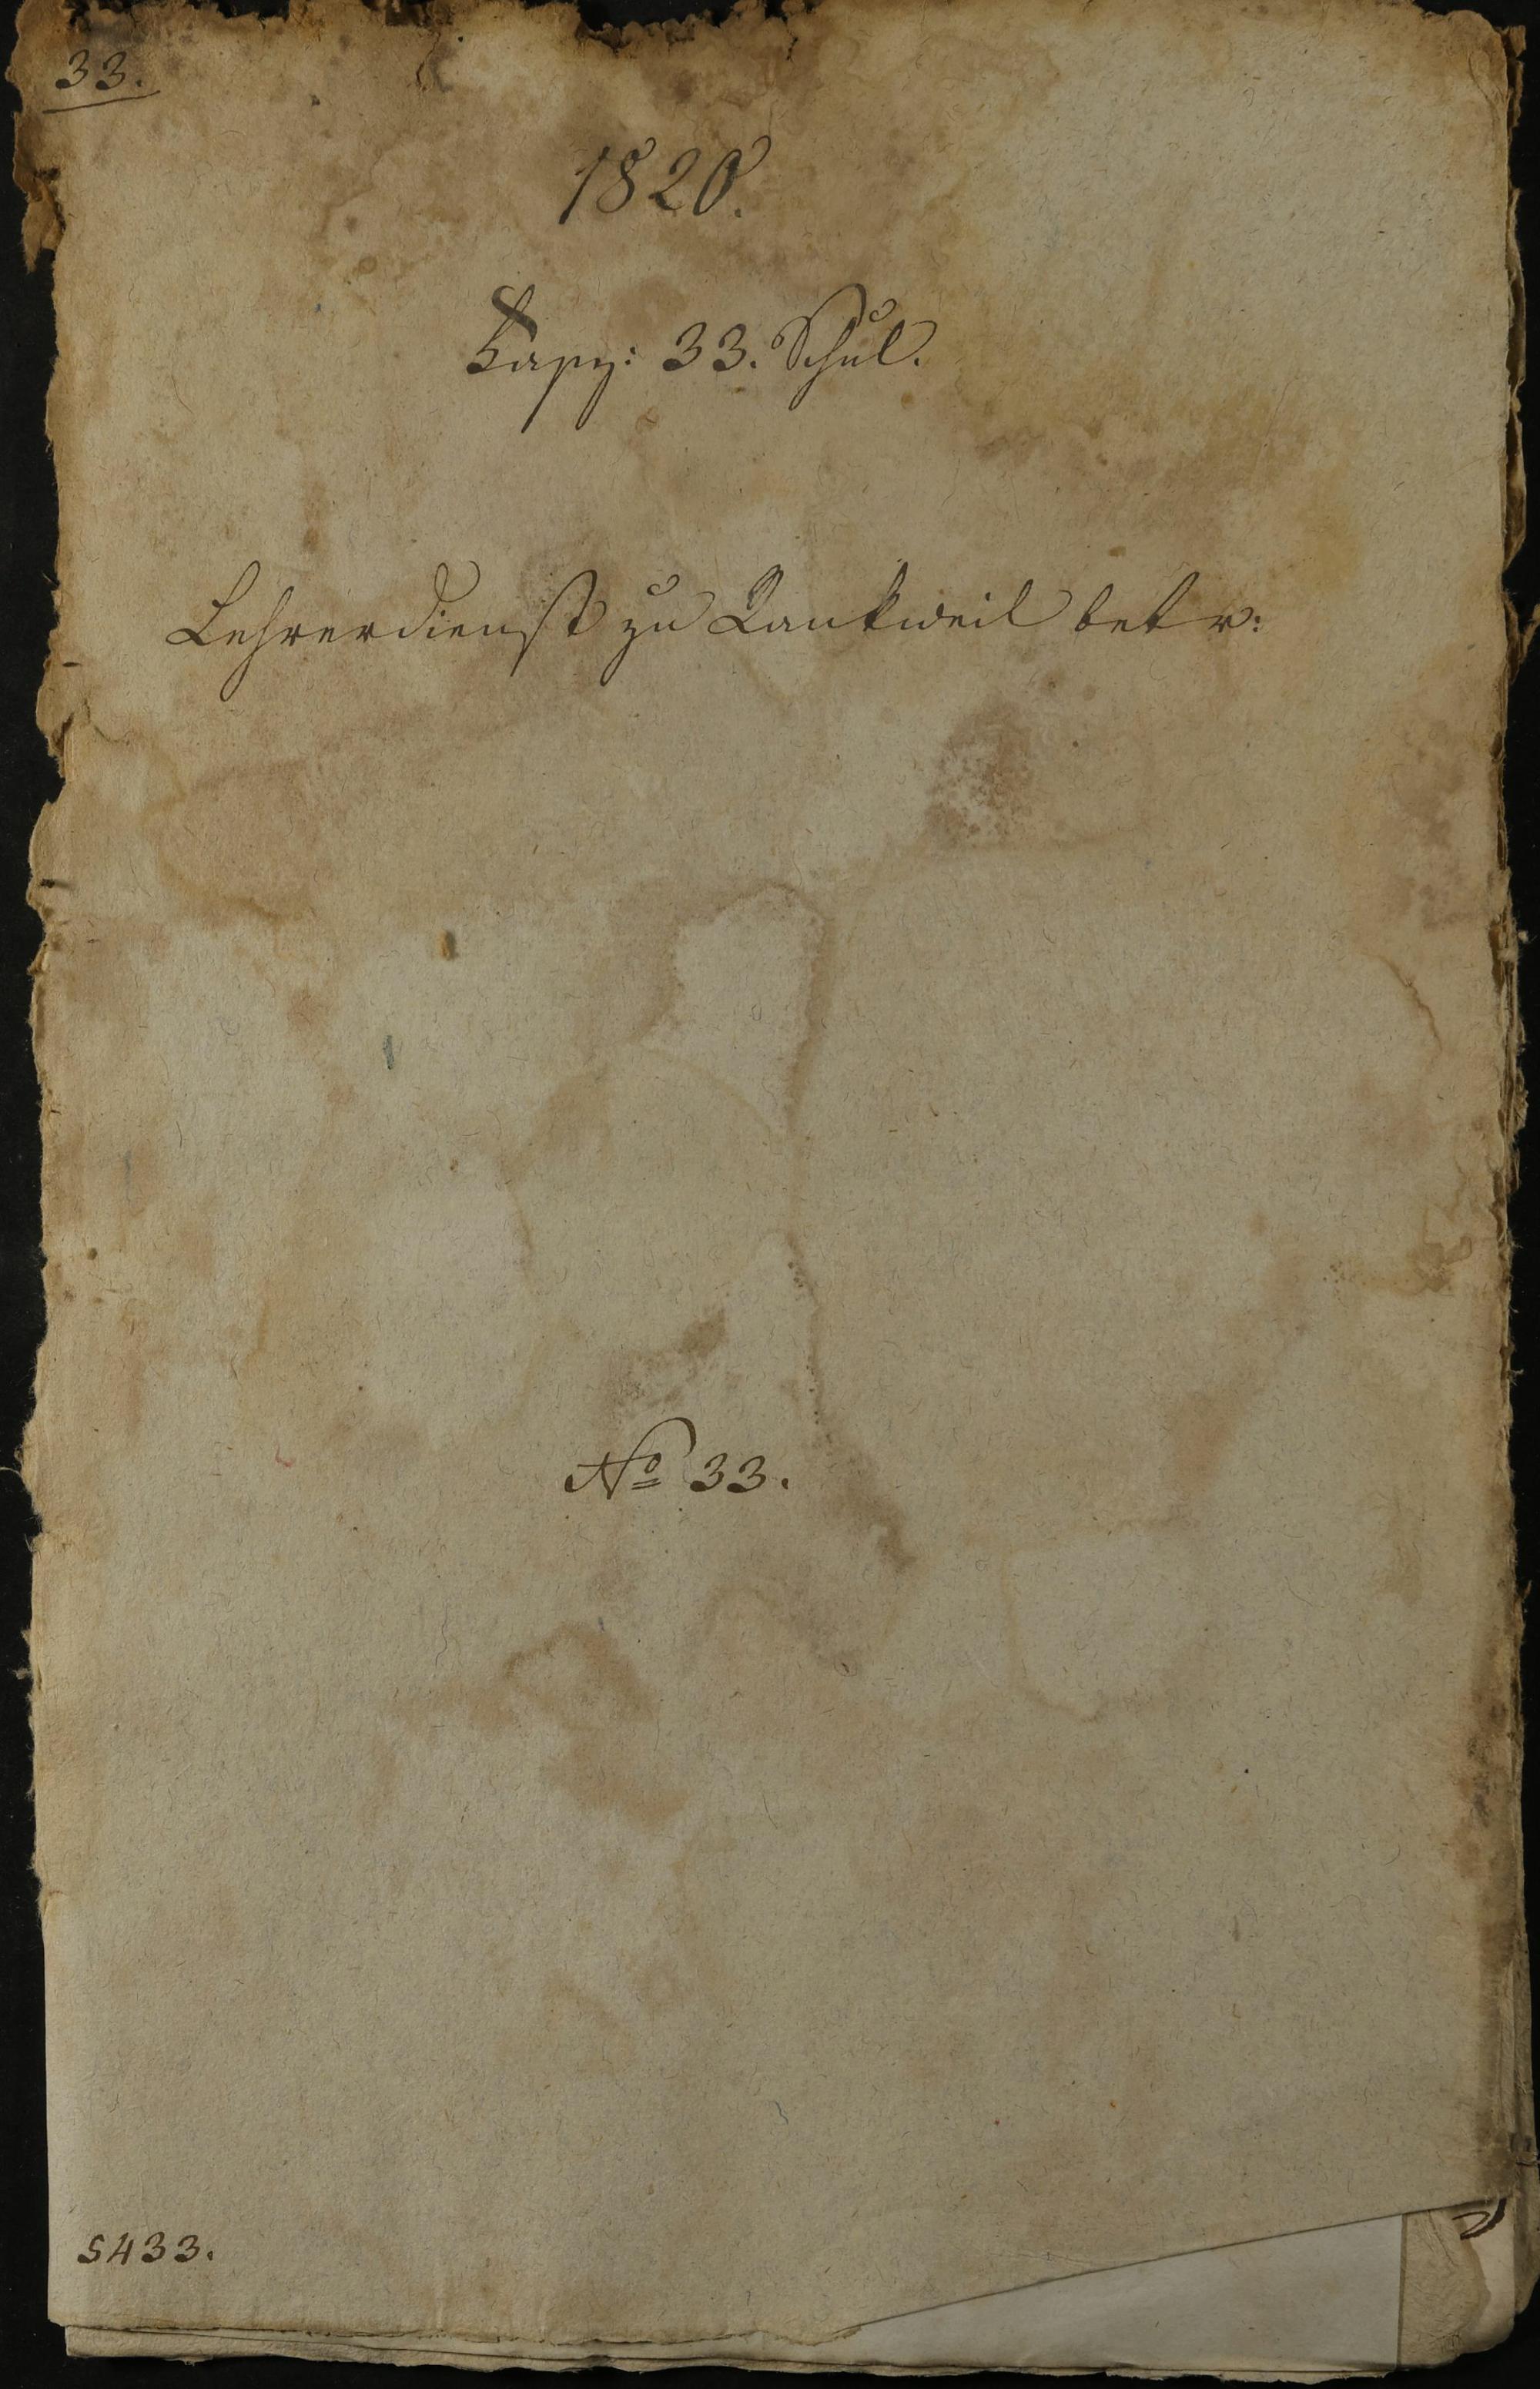 33.
1820.
Fasz: 33. Schul.
Lehrerdienst zu Rankweil betr:
No 33.
5433.